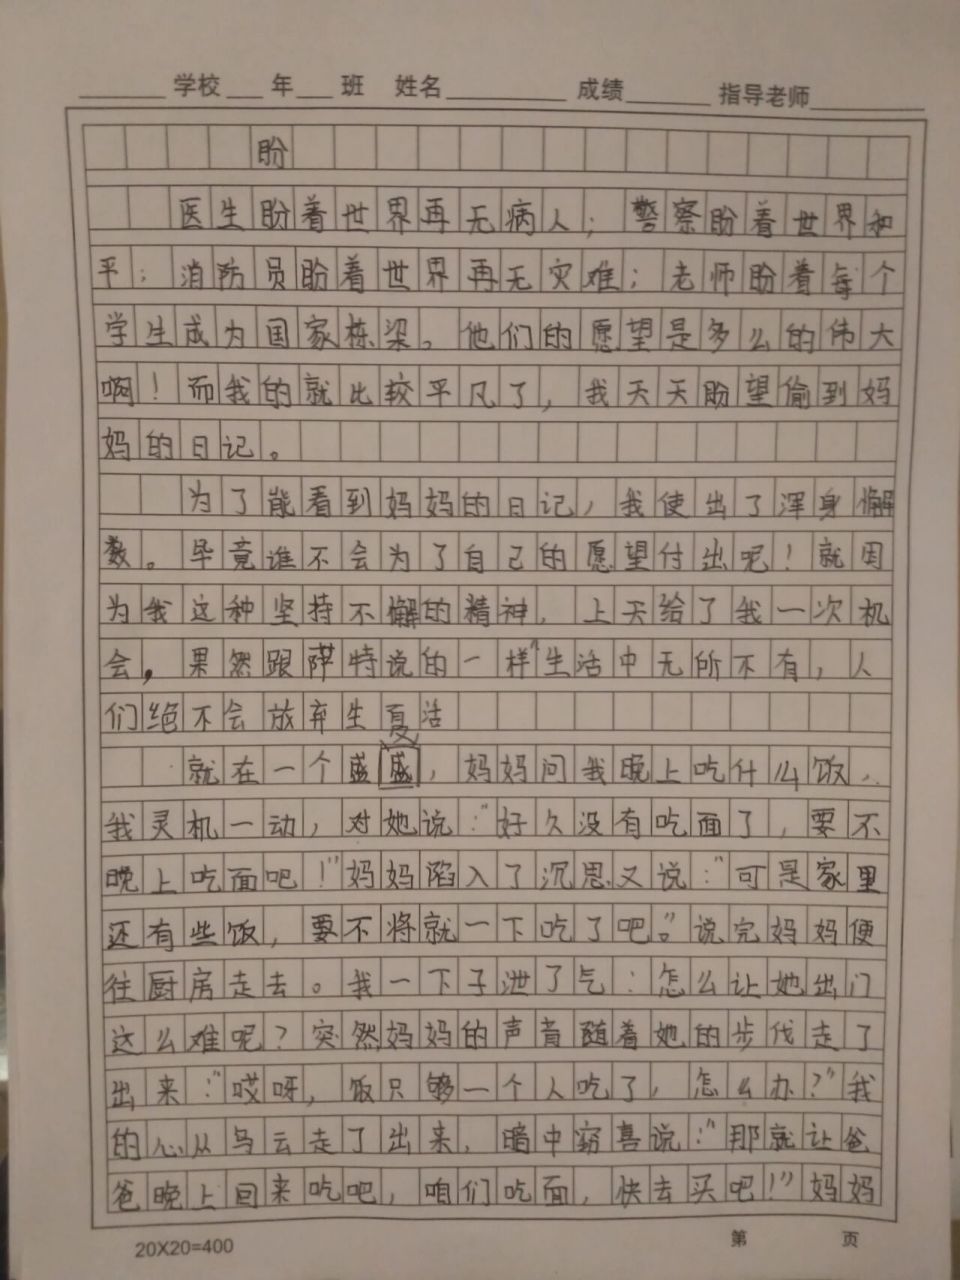 学校 年 班 姓名 成绩 指导老师
盼
医生盼着世界再无病人；警察盼着世界和
平；消防员盼着世界再无灾难；老师盼着每个
学生成为国家栋梁。他们的愿望是多么的伟大
啊！而我的就比较平凡了，我天天盼望偷到妈
妈的日记。
为了能看到妈妈的日记，我使出了浑身懈
数。毕竟谁不会为了自己的愿望付出呢！就因
为我这种坚持不懈的精神，上天给了我一次机
会，果然跟萨特说的一样"生活中无所不有，人
们绝不会放弃生活
夏
就在一个盛盛，妈妈问我晚上吃什么饭，
我灵机一动，对她说："好久没有吃面了，要不
晚上吃面吧！"妈妈陷入了沉思又说："可是家里
还有些饭，要不将就一下吃了吧。"说完妈妈便
往厨房走去。我一下子泄了气：怎么让她出门
这么难呢？突然妈妈的声音随着她的步伐走了
出来："哎呀，饭只够一个人吃了，怎么办？"我
的心从乌云走了出来，暗中窃喜说："那就让爸
爸晚上回来吃吧，咱们吃面，快去买吧！"妈妈
20X20=400 第 页